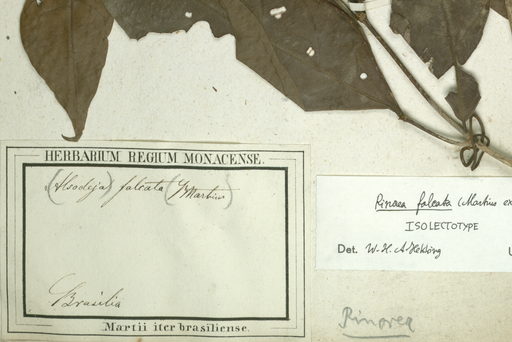 HERBARIUM REGIUM MONACENSE.
(Alsodeja) falcata (Martius)
Brasilia
Martii iter brasiliense.
Rinorea falcata (Martius ex
ISOLECTOTYPE
Det. W.H.A. Hekking
Rinorea